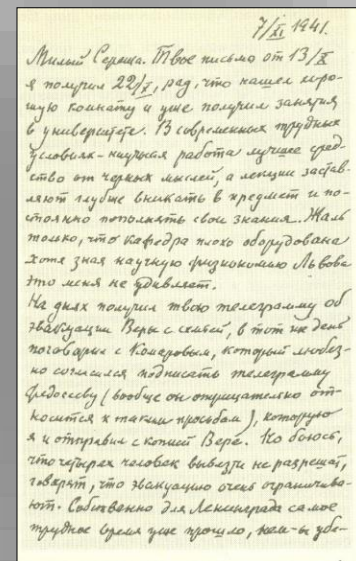 7/XI 1941.
Милый Сережа. Твое письмо от 13/X
я получил 22/X, рад, что нашел хоро-
шую комнату и уже получил занятия
в университете. В современных трудных
условиях - научная работа лучшее сред-
ство от черных мыслей, а лекции застав-
ляют глубже вникать в предмет и по-
стоянно пополнять свои знания. Жаль
только, что кафедра плохо оборудована
хотя зная научную физиономию Львова
это меня не удивляет.
На днях получил твою телеграмму об
эвакуации Веры с семьей, в тот же день
поговорил с Комаровым, который любез-
но согласился подписать телеграмму
Федосееву (вообще он отрицательно от-
носится к таким просьбам), которую
я и отправил с копией Вере. Но боюсь,
что четырех человек вывезти не разрешат,
говорят, что эвакуацию очень ограничива-
ют. Собственно для Ленинграда самое
трудное время уже прошло,